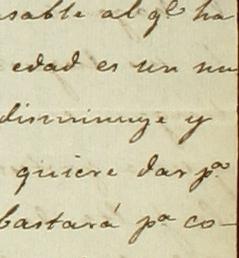 sable al qe ha
edad es un nu
disminuye y
quiere dar pa
bastará pa co-